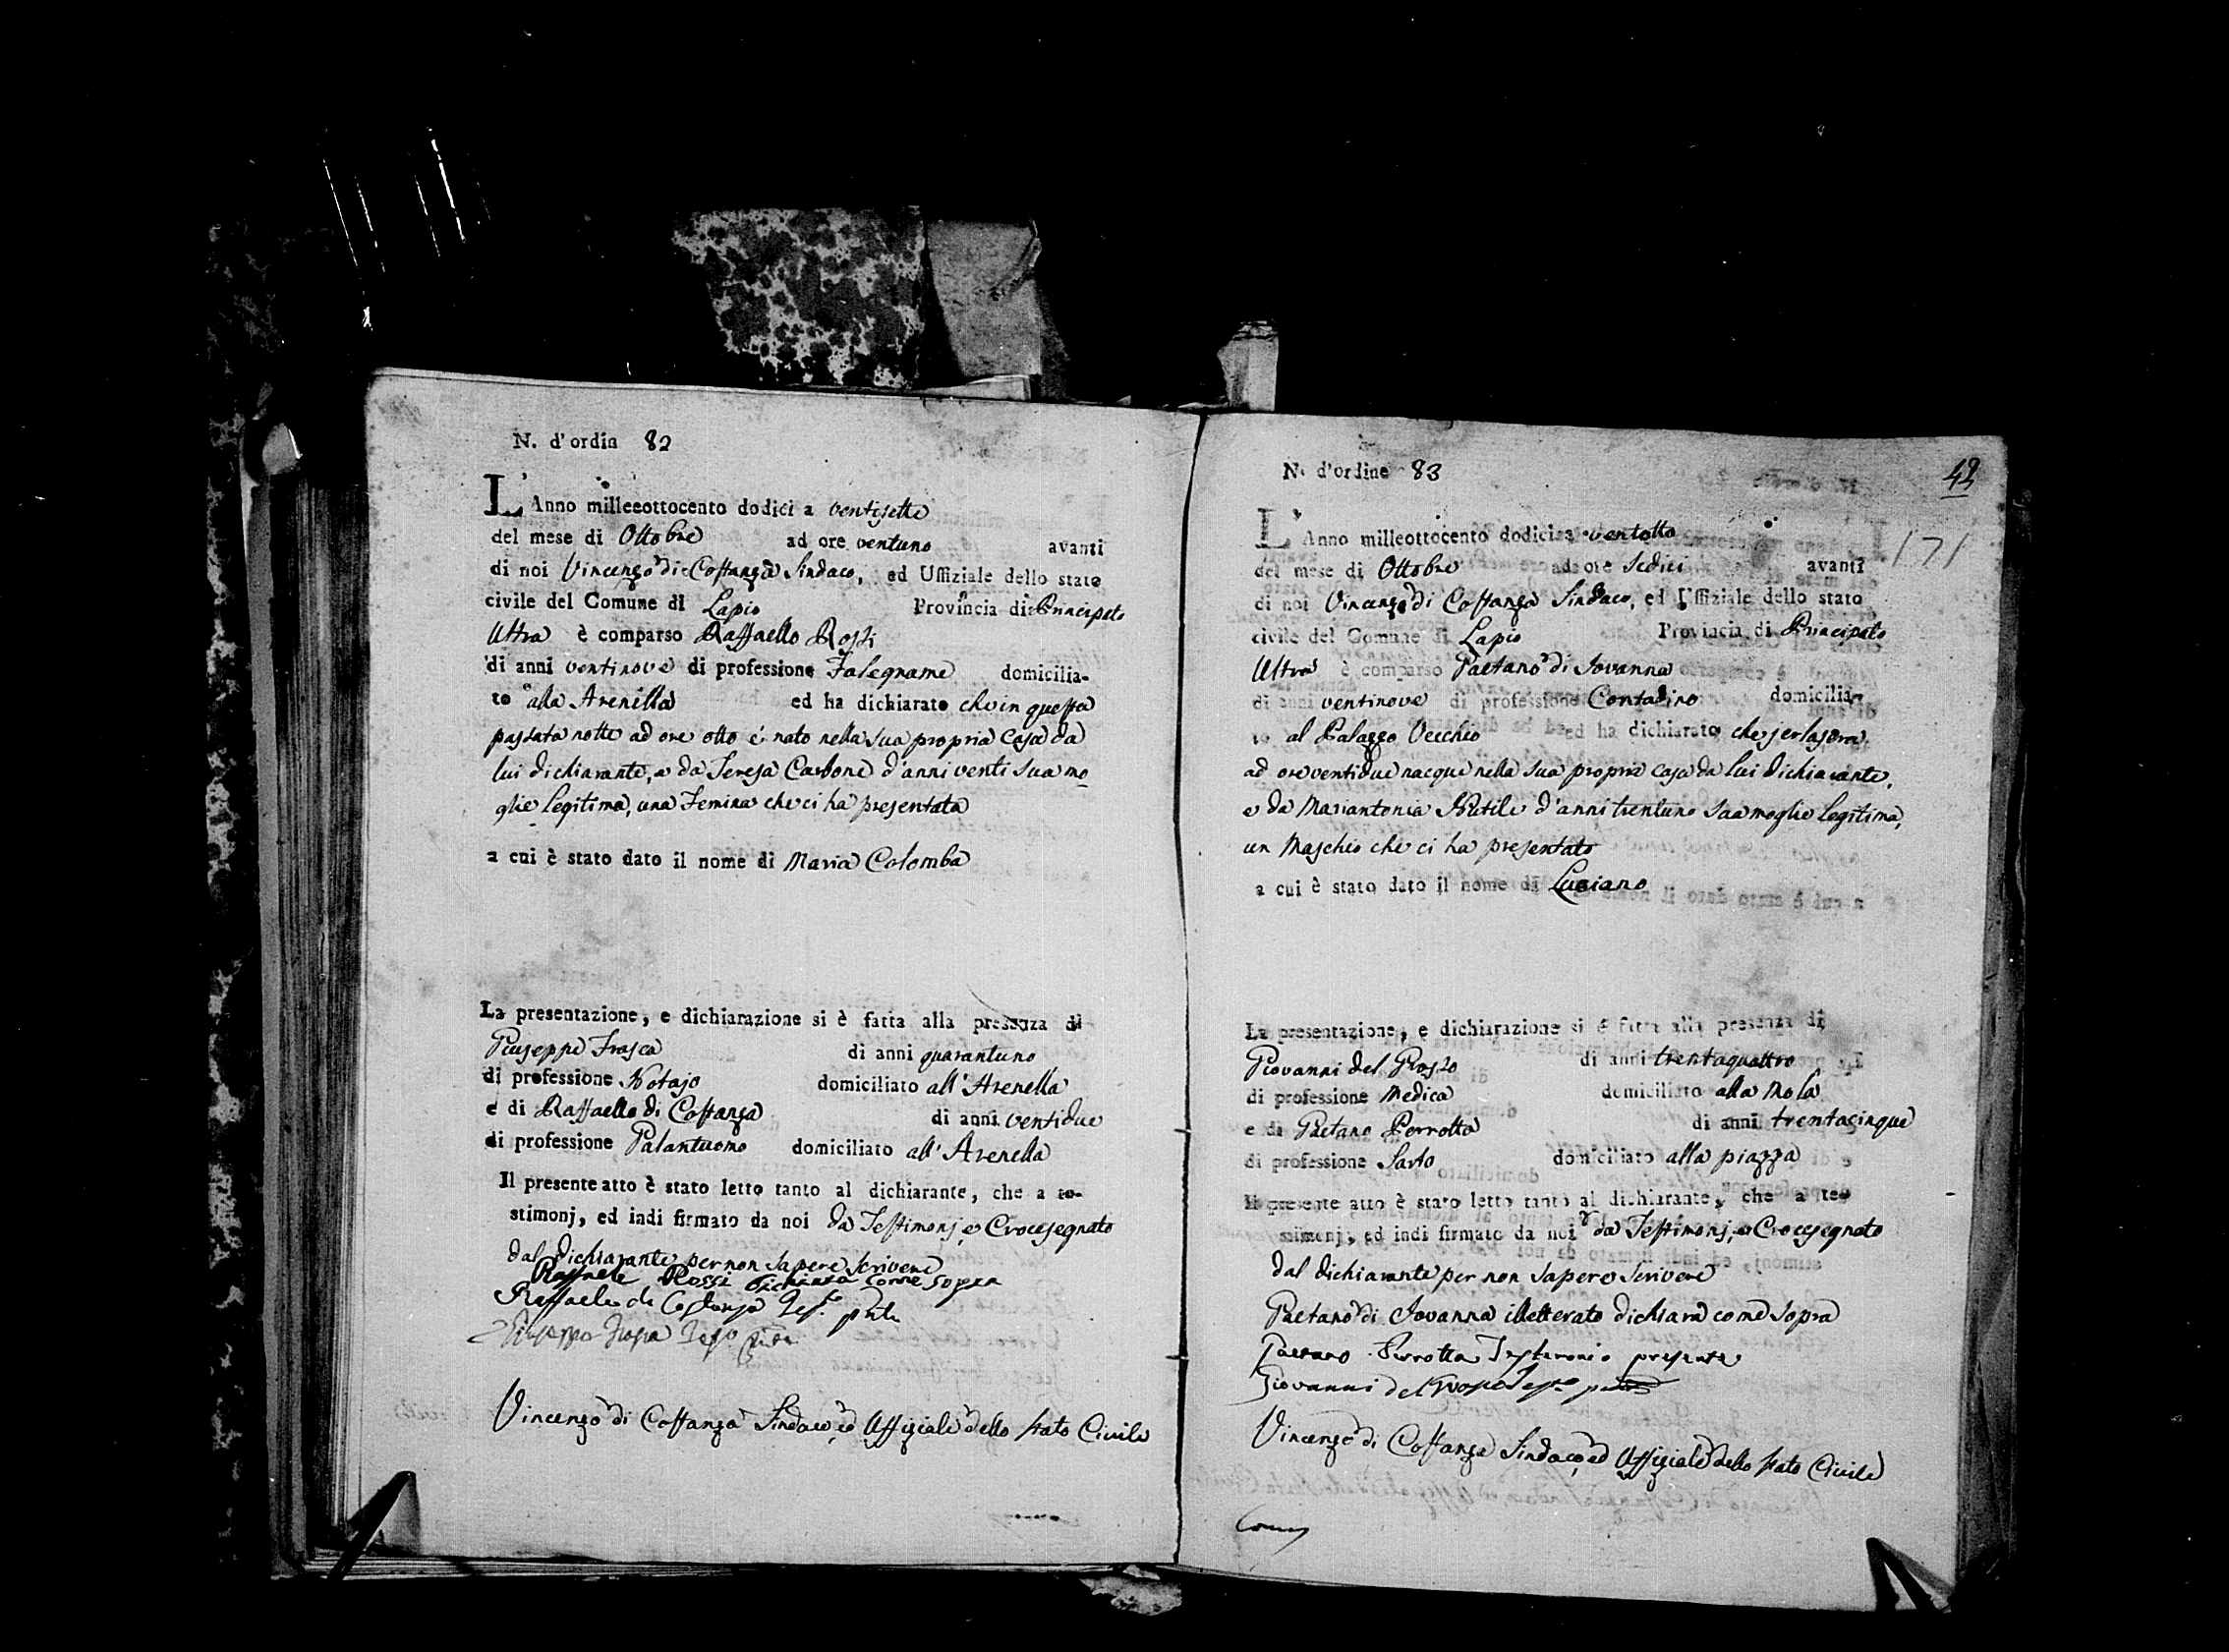 N. d'ordin 82
L'Anno milleeottocento dodici a ventisette
del mese di Ottobre ad ore ventuno avanti
di noi Vincenzo di Costanza Sindaco, ed Uffiziale dello stato
civile del Comune di Lapio Provincia di Principato
Ultra è comparso Raffaello Rossi
di anni ventinove di professione Falegname domicilia-
to alla Arenella ed ha dichiarato che in questa
passata notte ad ore otto è nato nella sua propria casa da
lui dichiarante, e da Teresa Carbone d'anni venti sua mo
glie legitima, una Femina che ci ha presentata
a cui è stato dato il nome di Maria Colomba
La presentazione, e dichiarazione si è fatta alla presenza di
Giuseppe Frasca di anni quarantuno
di professione Notajo domiciliato all'Arenella
e di Raffaello di Costanza di anni ventidue
di professione Galantuomo domiciliato all'Arenella
Il presente atto è stato letto tanto al dichiarante, che a te-
stimonj, ed indi firmato da noi da Testimonj, e Crocesegnato
dal dichiarante per non sapere scrivere
Raffaele Rossi dichiara come sopra
Raffaele di Costanza Tes.º pnte
Giuseppe Frasca
Vincenzo di Costanza Sindaco ed Uffiziale dello stato Civile
N. d'ordine 83
L'Anno milleottocento dodici a ventotto
del mese di Ottobre ad ore Sedici avanti
di noi Vincenzo di Costanza Sindaco, ed Uffiziale dello stato
civile del Comune di Lapio Provincia di Principato
Ultra è comparso Gaetano di Iovanna
di anni ventinove di professione Contadino domicilia-
to al Palazzo Vecchio ed ha dichiarato che jerlasera
ad ore ventidue nacque nella sua propria casa da lui dichiarante,
e da Mariantonia d'anni trentuno sua moglie legitima,
un Maschio che ci ha presentato
a cui è stato dato il nome di Luciano
La presentazione, e dichiarazione si è fatta alla presenza di
Giovanni del Grosso di anni trentaquattro
di professione Medico domiciliato alla Mola
e di Gaetano Perrotta di anni trentacinque
di professione Sarto domiciliato alla piazza
Il presente atto è stato letto tanto al dichiarante, che a te-
stimonj, ed indi firmato da noi da Testimonj, e Crocesegnato
dal dichiarante per non sapere scrivere
Gaetano di Iovanna illetterato dichiara come sopra
Gaetano Perrotta Testimonio presente
Giovanni del Grosso Tes.º
Vincenzo di Costanza Sindaco ed Uffiziale dello stato Civile
171